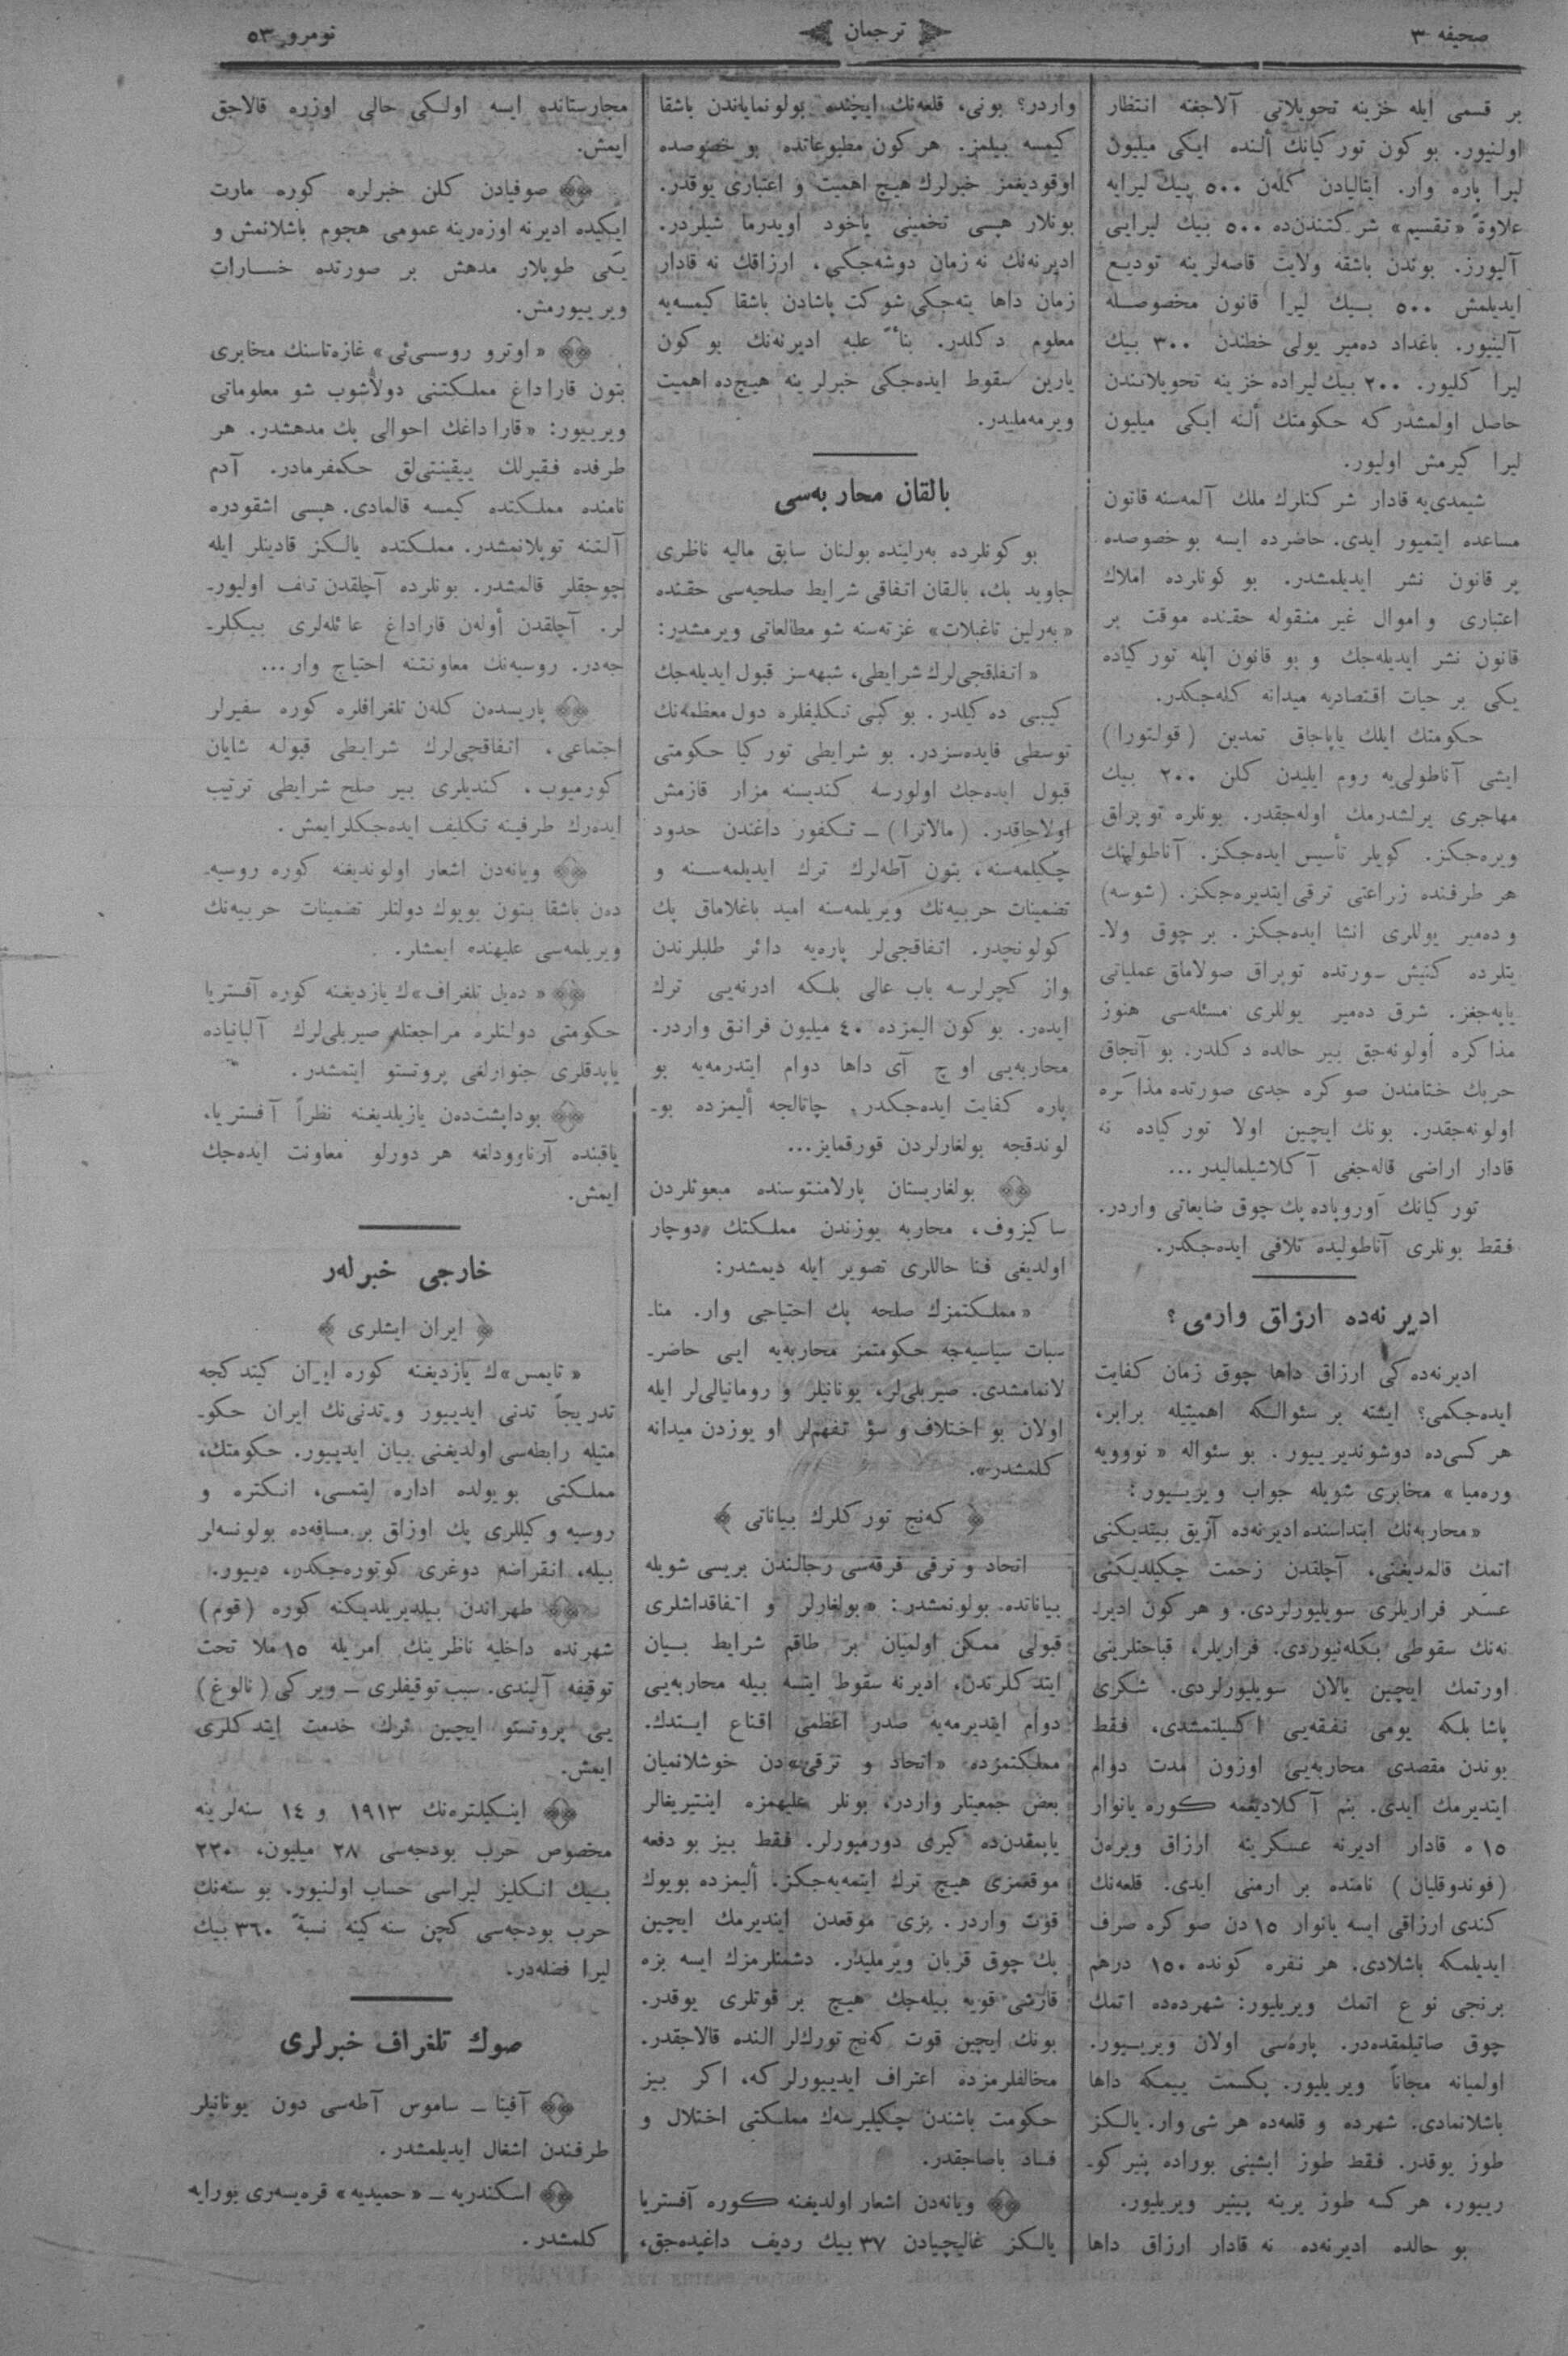 صحیفه ۳
ترجمان
نومرو ۵۳
بر قسمی ایله خزینه تحویلاتی آلاجغنه انتظار
اولنیور. بو كون توركیانك ألنده ایكی میلیون
لیرا پاره وار. ایتالیادن كله‌ن ۵۰۰ بیك لیرایه
علاوةً «تقسیم» شركتندن‌ده ۵۰۰ بیك لیرایی
آلیورز. بوندن باشقه ولایت قاصه‌لرینه تودیع
ایدیلمش ۵۰۰ بیك لیرا قانون مخصوصله
آلینیور. باغداد ده‌میر یولی خطندن ۳۰۰ بیك
لیرا كلیور. ۲۰۰ بیك لیراده خزینه تحویلاتندن
حاصل اولمشدر كه حكومتك ألنه ایكی میلیون
لیرا كیرمش اولیور.
شیمدی‌یه قادار شركتلرك ملك آلمه‌سنه قانون
مساعده ایتمیور ایدی. حاضرده ایسه بو خصوصده
بر قانون نشر ایدیلمشدر. بو كونلرده املاك
اعتباری و اموال غیر منقوله حقنده موقت بر
قانون نشر ایدیله‌جك و بو قانون ایله توركیاده
یكی بر حیات اقتصادیه میدانه كله‌جكدر.
حكومتك ایلك یاپاجاق تمدین (قولتورا)
ایشی آناطولی‌یه روم ایلیدن كلن ۲۰۰ بیك
مهاجری یرلشدرمك اوله‌جقدر. بونلره توپراق
ویره‌جكز. كویلر تأسیس ایده‌جكز. آناطولینك
هر طرفنده زراعتی ترقی ایتدیره‌جكز. (شوسه)
و ده‌میر یوللری انشا ایده‌جكز. بر چوق ولا-
یتلرده كنیش سورتده توپراق صولاماق عملیاتی
یاپه‌جغز. شرق ده‌میر یوللری مسئله‌سی هنوز
مذاكره أولونه‌جق بیر حالده دكلدر. بو آنجاق
حربك ختامندن صوكره جدی صورتده مذاكره
اولونه‌جقدر. بونك ایچین اولا توركیاده نه
قادار اراضی قاله‌جغی آكلاشیلمالیدر...
توركیانك آوروپاده پك چوق ضایعاتی واردر.
فقط بونلری آناطولیده تلافی ایده‌جكدر.
ادیرنه‌ده ارزاق وارمی؟
ادیرنه‌ده‌كی ارزاق داها چوق زمان كفایت
ایده‌جكمی؟ ایشته بر سئوالكه اهمیتیله برابر،
هر كسی‌ده دوشوندیرییور. بو سئواله «نوویه
وره‌میا» مخابری شویله جواب ویرییور:
«محاربه‌نك ابتداسنده ادیرنه‌ده آزیق بیتدیكنی
اتمك قالمدیغنی، آچلقدن زحمت چكیلدیكنی
عسكر فراریلری سویلیورلردی. و هر كون ادیر-
نه‌نك سقوطی بكله‌نیوردی. فراریلر، قباحتلرینی
اورتمك ایچین یالان سویلیورلردی. شكری
پاشا بلكه یومی نفقه‌یی اكسیلتمشدی، فقط
بوندن مقصدی محاربه‌یی اوزون مدت دوام
ایتدیرمك ایدی. بنم آكلادیغمه كوره یانوار
۱۵ ه قادار ادیرنه عسكرینه ارزاق ویره‌ن
(فوندوقلیان) نامنده بر ارمنی ایدی. قلعه‌نك
كندی ارزاقی ایسه یانوار ۱۵دن صوكره صرف
ایدیلمكه باشلادی. هر نفره كونده ۱۵۰ درهم
برنجی نوع اتمك ویریلیور: شهرده‌ده اتمك
چوق صاتیلمقده‌در. پاره‌سی اولان ویرییور.
اولمیانه مجاناً ویریلیور. پكسمت ییمكه داها
باشلانمادی. شهرده و قلعه‌ده هر شی وار. یالكز
طوز یوقدر. فقط طوز ایشینی بوراده پنیر كو-
رییور، هر كسه طوز یرینه پینیر ویریلیور.
بو حالده ادیرنه‌ده نه قادار ارزاق داها
واردر؟ بونی، قلعه‌نك ایچنده بولونمایاندن باشقا
كیمسه بیلمز. هر كون مطبوعاتده بو خصوصده
اوقودیغمز خبرلرك هیچ اهمیت و اعتباری یوقدر.
بونلار هپسی تخمینی یاخود اویدرما شیلردر.
ادیرنه‌نك نه زمان دوشه‌جكی، ارزاقك نه قادار
زمان داها یته‌جكی شوكت پاشادن باشقا كیمسه‌یه
معلوم دكلدر. بناءً علیه ادیرنه‌نك بو كون
یارین سقوط ایده‌جكی خبرلرینه هیچ‌ده اهمیت
ویرمه‌ملیدر.
بالقان محاربه‌سی
بو كونلرده به‌رلینده بولنان سابق مالیه ناظری
جاوید بك، بالقان اتفاقی شرایط صلحیه‌سی حقنده
«به‌رلین تاغبلات» غزته‌سنه شو مطالعاتی ویرمشدر:
«اتفاقجی‌لرك شرایطی، شبهه‌سز قبول ایدیله‌جك
كیبی ده‌كیلدر. بو كبی تكلیفلره دول معظمه‌نك
توسطی فایده‌سزدر. بو شرایطی توركیا حكومتی
قبول ایده‌جك اولورسه كندیسنه مزار قازمش
اولاجاقدر. (مالاترا) - تكفور داغندن حدود
چكیلمه‌سنه، بتون آطه‌لرك ترك ایدیلمه‌سنه و
تضمینات حربیه‌نك ویریلمه‌سنه امید باغلاماق پك
كولونجدر. اتفاقجی‌لر پاره‌یه دائر طلبلرندن
واز كچرلرسه باب عالی بلكه ادرنه‌یی ترك
ایده‌ر. بو كون الیمزده ۴۰ میلیون فرانق واردر.
محاربه‌یی اوچ آی داها دوام ایتدرمه‌یه بو
پاره كفایت ایده‌جكدر. چاتالجه ألیمزده بو-
لوندقجه بولغارلردن قورقمایز...
بولغاریستان پارلامنتوسنده مبعوثلردن
ساكیزوف، محاربه یوزندن مملكتك دوچار
اولدیغی فنا حاللری تصویر ایله دیمشدر:
«مملكتمزك صلحه پك احتیاجی وار. منا-
سبات سیاسیه‌جه حكومتمز محاربه‌یه ایی حاضر-
لانمامشدی. صیربلی‌لر، یونانیلر و رومانیالی‌لر ایله
اولان بو اختلاف و سؤ تفهم‌لر او یوزدن میدانه
كلمشدر».
كه‌نج توركلرك بیاناتی
اتحاد و ترقی فرقه‌سی رجالندن بریسی شویله
بیاناتده بولونمشدر: «بولغارلر و اتفاقداشلری
قبولی ممكن اولمیان بر طاقم شرایط بیان
ایتدكلرندن، ادیرنه سقوط ایتسه بیله محاربه‌یی
دوام ایتدیرمه‌یه صدر اعظمی اقناع ایتدك.
مملكتمزده «اتحاد و ترقی»دن خوشلانمیان
بعض جمعیتلر واردر، بونلر علیهمزه اینتیریغالر
یاپمقدن‌ده كیری دورمیورلر. فقط بیز بو دفعه
موقعمزی هیچ ترك ایتمه‌یه‌جكز. ألیمزده بویوك
قوت واردر. بزی موقعدن ایندیرمك ایچین
پك چوق قربان ویرملیدر. دشمنلرمزك ایسه بزه
قارشی قویه بیله‌جك هیچ بر قوتلری یوقدر.
بونك ایچین قوت كه‌نج تورك‌لر النده قالاجقدر.
مخالفلرمزده اعتراف ایدییورلر كه، اكر بیز
حكومت باشندن چكیلیرسه‌ك مملكتی اختلال و
فساد باصاجقدر.
ویانه‌دن اشعار اولدیغنه كوره آفستریا
یالكز غالیچیادن ۳۷ بیك ردیف داغیده‌جق،
مجارستانده ایسه اولكی حالی اوزره قالاجق
ایمش.
صوفیادن كلن خبرلره كوره مارت
ایكیده ادیرنه اوزه‌رینه عمومی هجوم باشلانمش و
یكی طوپلار مدهش بر صورتده خسارات
ویرییورمش.
«اوترو روسسی‌ئی» غازه‌تاسنك مخابری
بتون قاراداغ مملكتنی دولاشوب شو معلوماتی
ویرییور: «قاراداغك احوالی پك مدهشدر. هر
طرفده فقیرلك ییقینتی‌لق حكمفرمادر. آدم
نامنده مملكتده كیمسه قالمادی. هپسی اشقودره
آلتنه توپلانمشدر. مملكتده یالكز قادینلر ایله
چوجقلر قالمشدر. بونلرده آچلقدن تلف اولیور-
لر. آچلقدن أوله‌ن قاراداغ عائله‌لری بیكلر-
جه‌در. روسیه‌نك معاونتنه احتیاج وار...
پاریسده‌ن كله‌ن تلغرافلره كوره سفیرلر
اجتماعی، اتفاقچی‌لرك شرایطی قبوله شایان
كورمیوب، كندیلری بیر صلح شرایطی ترتیب
ایده‌رك طرفینه تكلیف ایده‌جكلرایمش.
ویانه‌دن اشعار اولوندیغنه كوره روسیه-
ده‌ن باشقا بتون بویوك دولتلر تضمینات حربیه‌نك
ویریلمه‌سی علیهنده ایمشلر.
«ده‌یل تلغراف»ك یازدیغنه كوره آفستریا
حكومتی دولتلره مراجعتله صیربلی‌لرك آلبانیاده
یاپدقلری جنوارلغی پروتستو ایتمشدر.
بوداپشت‌ده‌ن یازیلدیغنه نظراً آفستریا،
یاقینده آرناوودلغه هر دورلو معاونت ایده‌جك
ایمش.
خارجی خبرله‌ر
ایران ایشلری
«تایمس»ك یازدیغنه كوره ایران كیتدكجه
تدریجاً تدنی ایدییور و تدنی‌نك ایران حكو-
متیله رابطه‌سی اولدیغنی بیان ایدییور. حكومتك،
مملكتی بو یولده اداره ایتمسی، انكتره و
روسیه وكیللری پك اوزاق بر مسافه‌ده بولونسه‌لر
بیله، انقراضه دوغری كوتوره‌جكدر، دییور.
طهراندن بیلدیریلدیكنه كوره (قوم)
شهرنده داخلیه ناظرینك امریله ۱۵ ملا تحت
توقیفه آلیندی. سبب توقیفلری - ویركی (نالوغ)
یی پروتستو ایچین ترك خدمت ایتدكلری
ایمش.
اینكیلتره‌نك ۱۹۱۳ و ۱۴ سنه‌لرینه
مخصوص حرب بودجه‌سی ۲۸ میلیون، ۲۲۰
بیك انكلیز لیراسی حساب اولنیور. بو سنه‌نك
حرب بودجه‌سی كچن سنه‌كینه نسبةً ۳۶۰ بیك
لیرا فضله‌در.
صوك تلغراف خبرلری
آفینا - ساموس آطه‌سی دون یونانیلر
طرفندن اشغال ایدیلمشدر.
اسكندریه - «حمیدیه» قره‌یسه‌ری بورایه
كلمشدر.